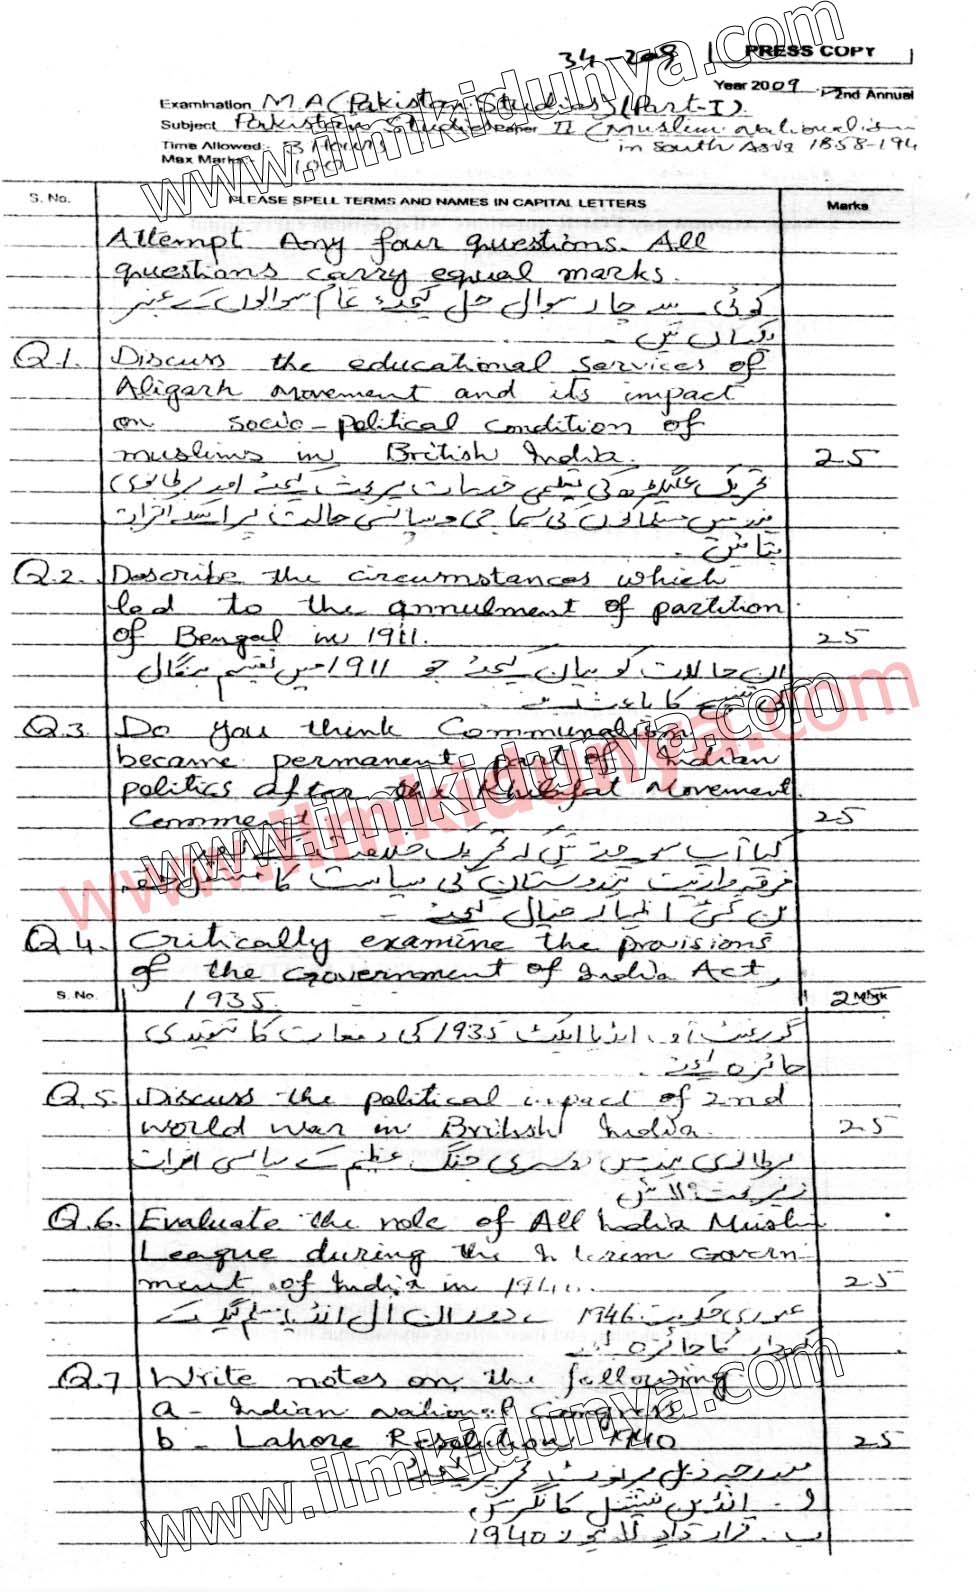 34-209
PRESS COPY
Year 2009 2nd Annual
Examination M.A (Pakistan Studies) (Part-I)
Subject Pakistan Studies Paper II (Muslim Nationalism
in South Asia 1858-194
Time Allowed:- 3 Hours
Max Marks 100
S. No. PLEASE SPELL TERMS AND NAMES IN CAPITAL LETTERS Marks
Attempt Any four questions. All
questions carry equal marks.
کوئی سے چار سوال حل کیجئے، تمام سوالوں کے نمبر
یکساں ہیں۔
Q.1. Discuss the educational services of
Aligarh Movement and its impact
on socio-political condition of
muslims in British India. 25
تحریک علیگڑھ کی تعلیمی خدمات پر بحث کیجئے اور برطانوی
ہند میں مسلمانوں کی سماجی و سیاسی حالت پر اسکے اثرات
بتائیں۔
Q.2. Describe the circumstances which
led to the annulment of partition
of Bengal in 1911. 25
ان حالات کو بیان کیجئے جو 1911 میں تقسیم بنگال
کی تنسیخ کا باعث بنے۔
Q.3. Do you think Communalism
became permanent part of Indian
politics after the Khilafat Movement.
Comment 25
کیا آپ سمجھتے ہیں کہ تحریک خلافت کے بعد
فرقہ واریت ہندوستان کی سیاست کا مستقل حصہ
بن گئی اظہار خیال کیجئے۔
Q.4. Critically examine the provisions
of the Government of India Act,
S. No. 1935. 25
گورنمنٹ آف انڈیا ایکٹ 1935 کی دفعات کا تنقیدی
جائزہ لیجئے۔
Q.5. Discuss the political impact of 2nd
world war in British India. 25
برطانوی ہند میں دوسری جنگ عظیم کے سیاسی اثرات
زیر بحث لائیں
Q.6. Evaluate the role of All India Muslim
League during the Interim Govern-
ment of India in 25
عبوری حکومت 1946 کے دوران آل انڈیا مسلم لیگ کے
کردار کا جائزہ لیجئے
Q.7 Write notes on the following
a - Indian National Congress
b - Lahore Resolution 1940 25
مندرجہ ذیل پر نوٹ تحریر کیجئے
ا۔ انڈین نیشنل کانگرس
ب۔ قرارداد لاہور 1940
www.ilmkidunya.com
www.ilmkidunya.com
www.ilmkidunya.com
www.ilmkidunya.com